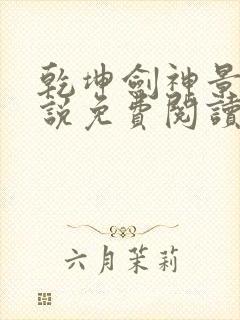 乾坤劍神景
說免費閱讀
六月茉莉